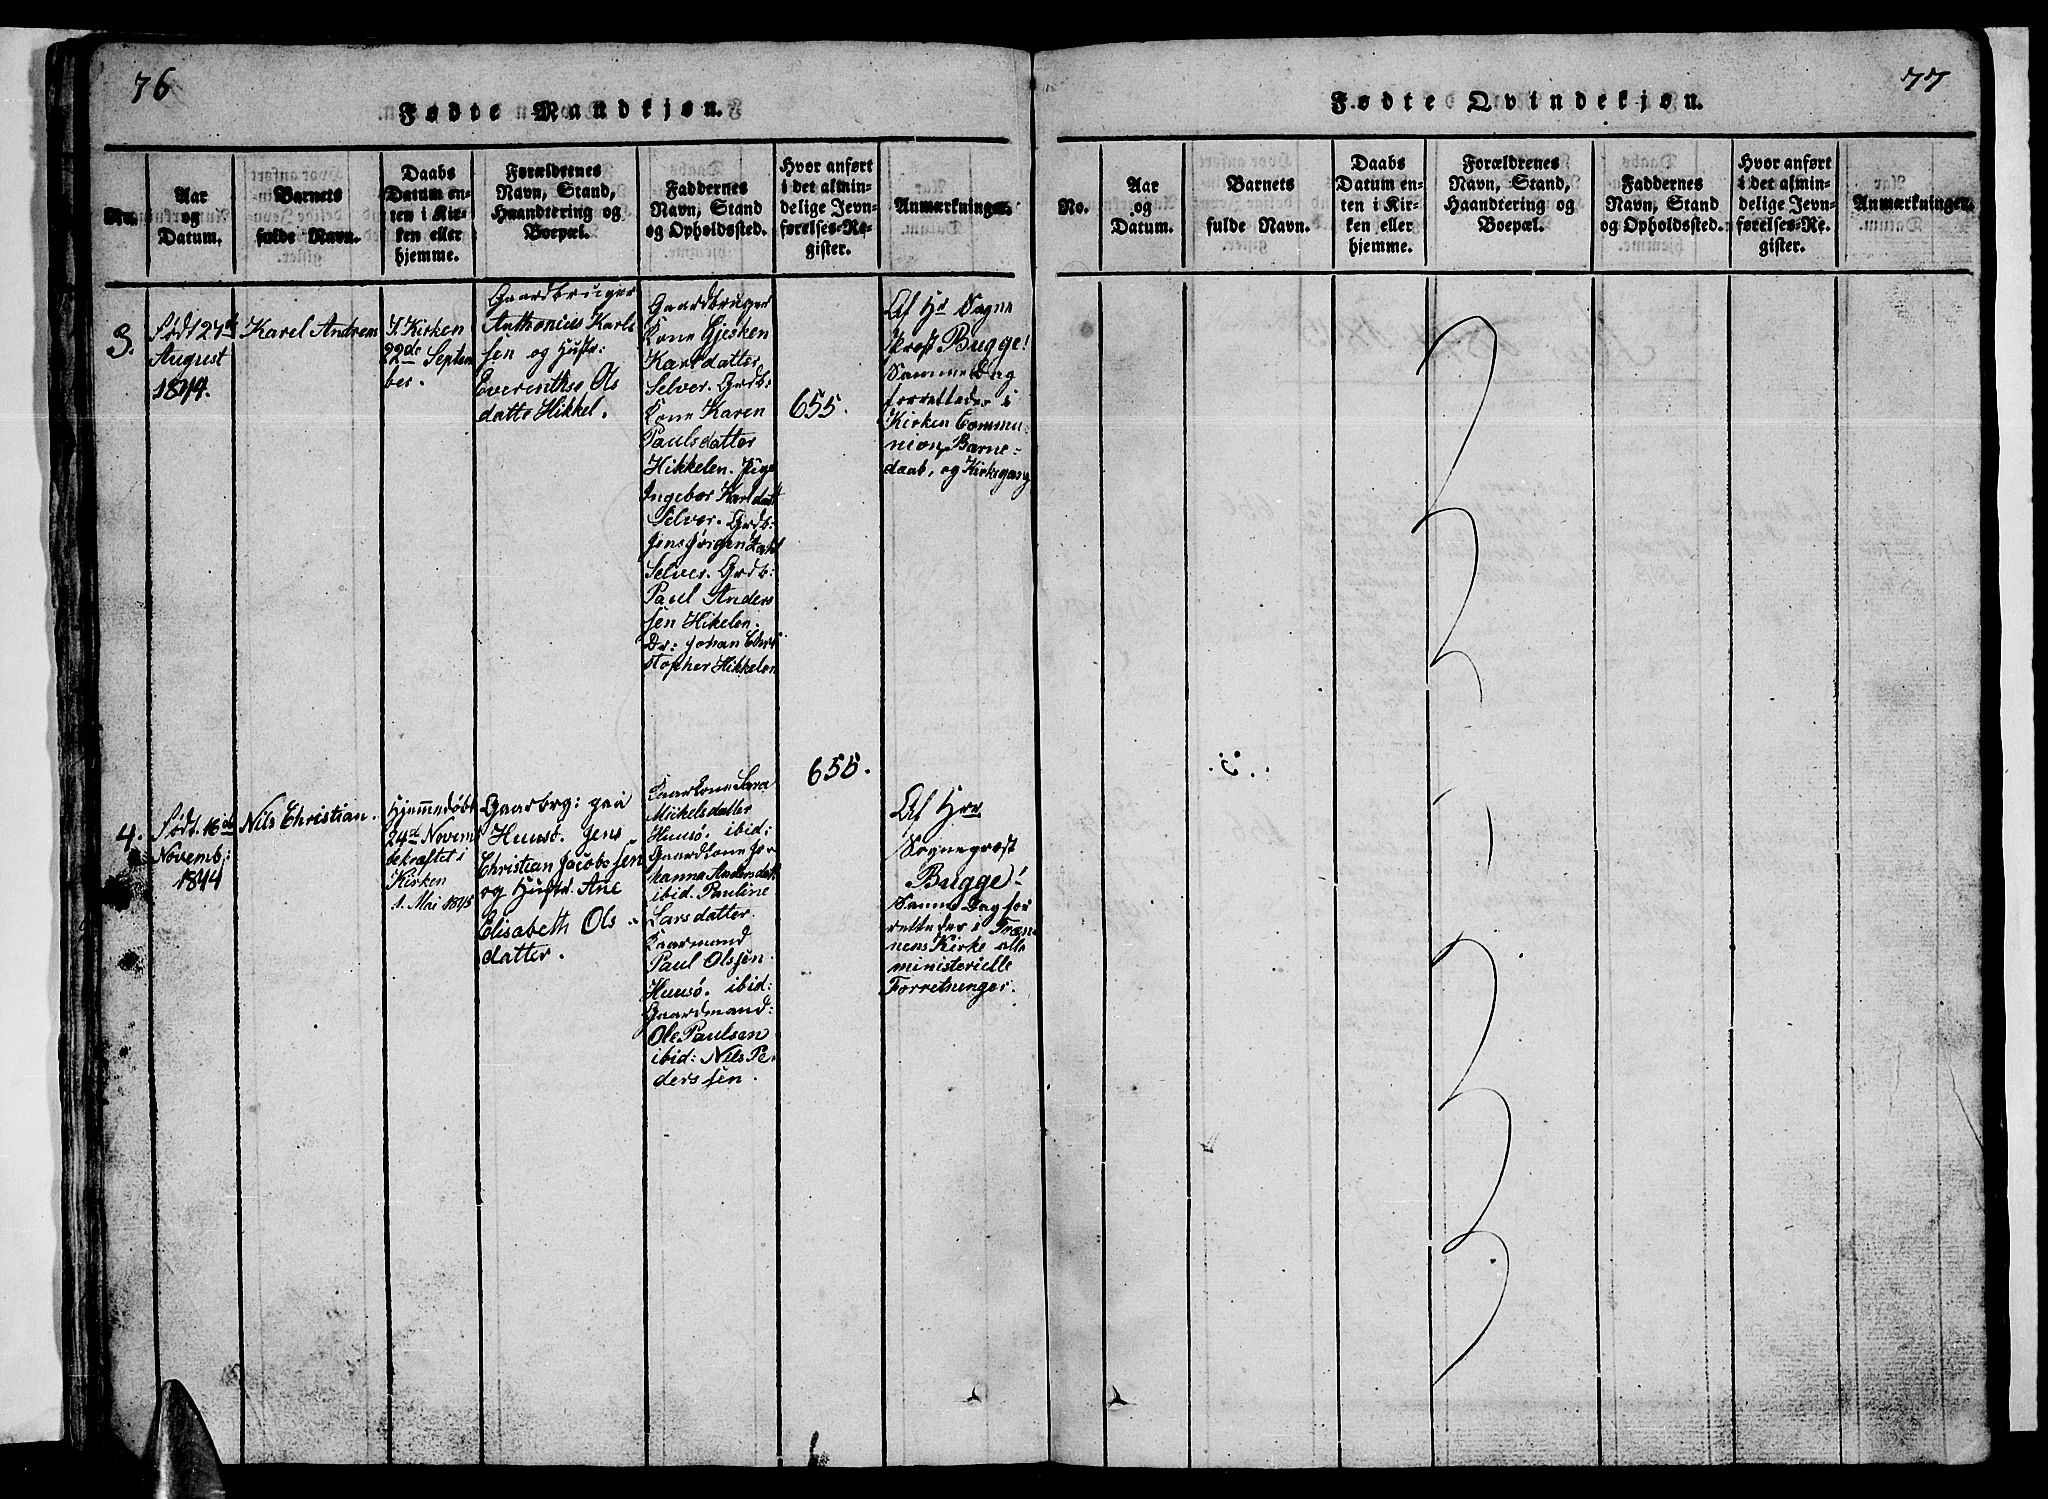 76
Fødte Mandkjøn.
No.
Aar
og
Datum.
Barnets
fulde Navn.
Daabs
Datum en-
ten i Kir-
ken eller
hjemme.
Forældrenes
Navn, Stand,
Haandtering og
Boepæl.
Faddernes
Navn, Stand
og Opholdssted.
Hvor anført
i det almin-
delige Jevn-
førelses-Re-
gister.
Anmærkninger.
3.
Født 27de
August
1844.
Karel Andreas
I Kirken
22de Septem
ber.
Gaardbruger
Anthonius Karl
sen og Hustr:
Everenthse Ols
datter Hikkel.
Gaardbruger
Kone Gjesken
Karlsdatter
Selver. Grdb:
Kone Karen
Paulsdatter
Hikkelen. Pige
Ingebor Karlsdatt
Selver. Grdb:
Jens Jørgen
Selver. Grdb:
Paul Anders
sen Hikelen.
Dr: Johan Chri
stopher Hikkelen
655.
Af Hr Sogne
Prost Bugge!
Samme Dag
forrettedes i
Kirken Commu-
nion, Barne-
daab, og Kirkegang
4.
Født 16de
Novemb:
1844
Nils Christian.
Hjemmedøbt
24de Novemb
bekræftet i
Kirken
1. Mai 1845
Gaarbrg: paa
Huusø. Jens
Christian Jacobssen
og Hustr. Ane
Elisabeth Ols-
datter.
Gaarkone Sara
Mikelsdatter
Huusø. ibid:
Gaardkone Jo-
hanna Andersdatt
ibid. Pauline
Larsdatter.
Gaarmand
Paul Olssen.
Huusø. ibid:
Gaardmand:
Ole Paulsen
ibid: Nils Pe-
derssen.
655.
Af Hrr
Sogneprost
Bugge!
Samme Dag for
rettedes i Træn
nens Kirke alle
ministerielle
Forretninger.
77
Fødte Qvindekjøn.
No.
Aar
og
Datum.
Barnets
fulde Navn.
Daabs
Datum en-
ten i Kir-
ken eller
hjemme.
Forældrenes
Navn, Stand,
Haandtering og
Boepæl.
Faddernes
Navn, Stand
og Opholdssted.
Hvor anført
i det almin-
delige Jevn-
førelses-Re-
gister.
Anmærkninger.